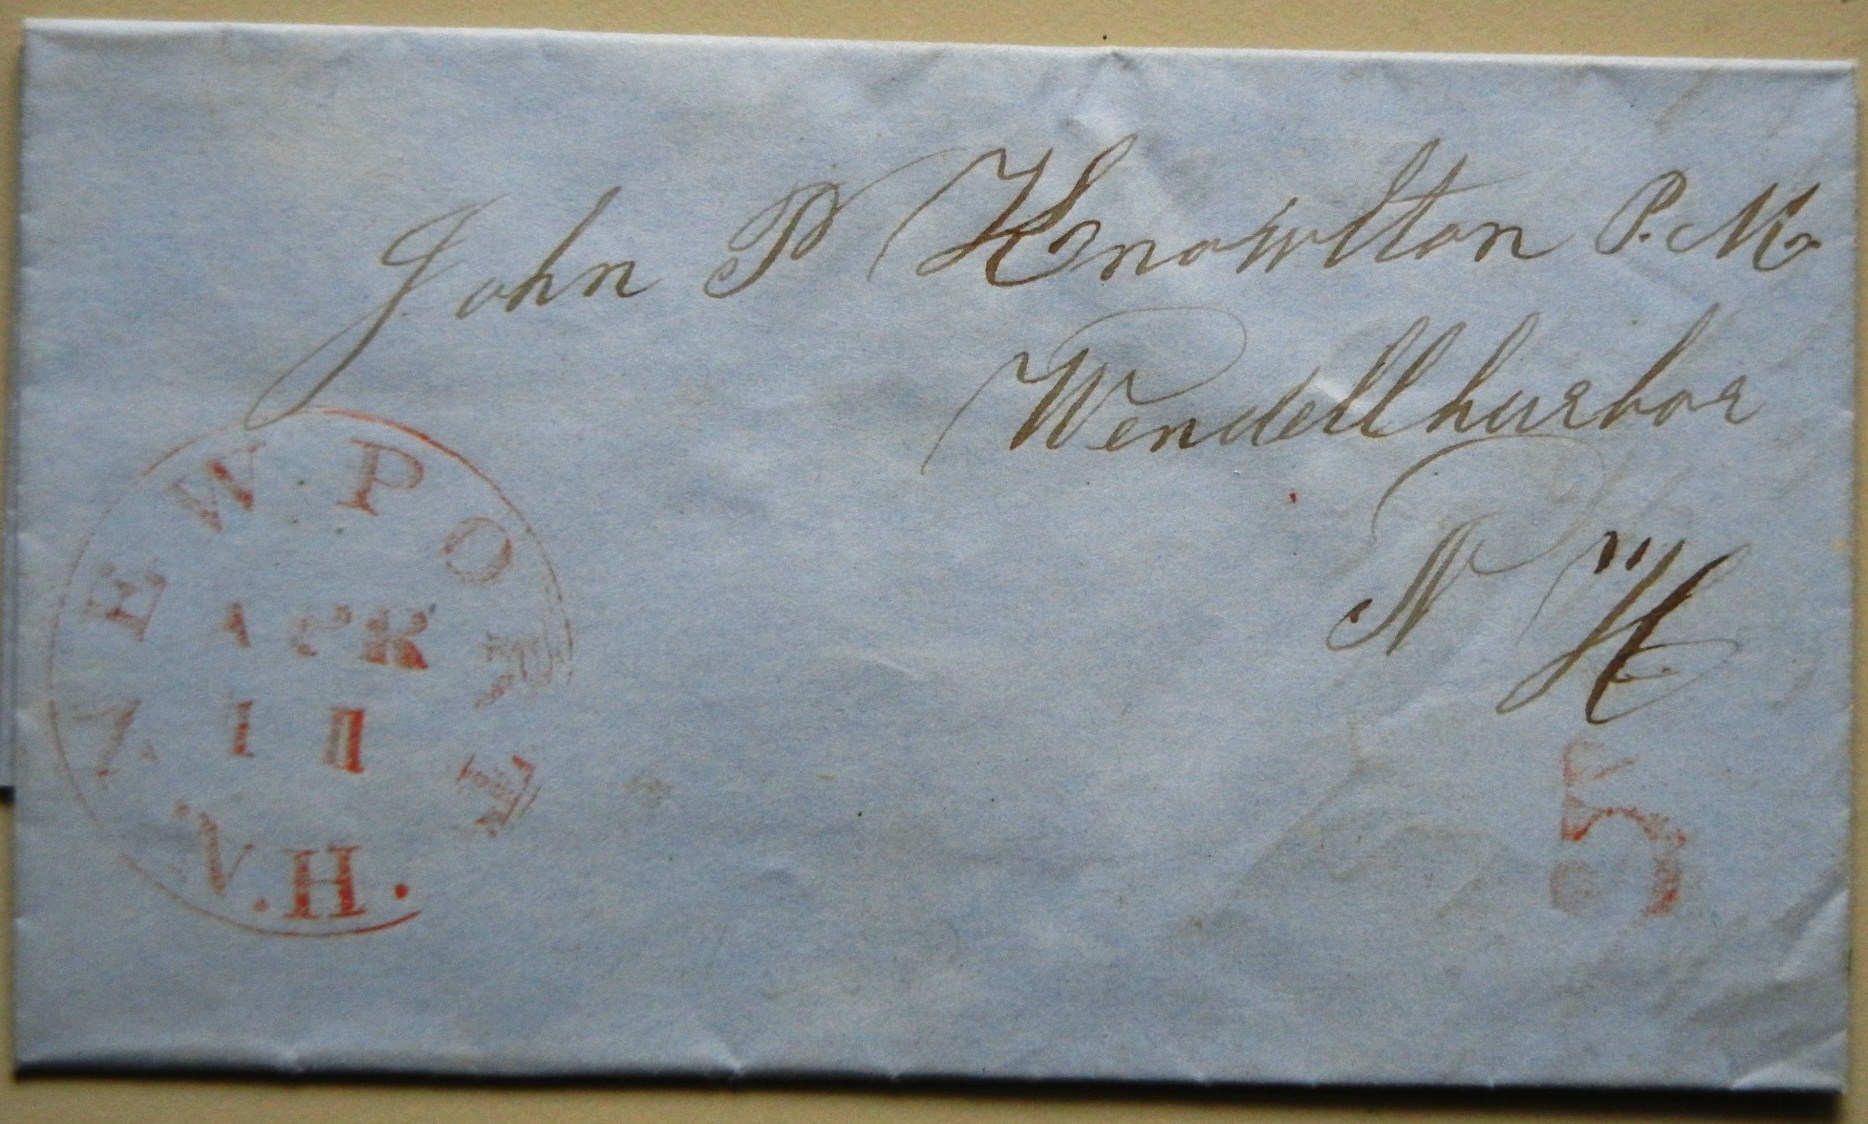 John P Knowlton P.M.
Wendell harbor
N H
NEWPORT
APR
11
N.H.
5